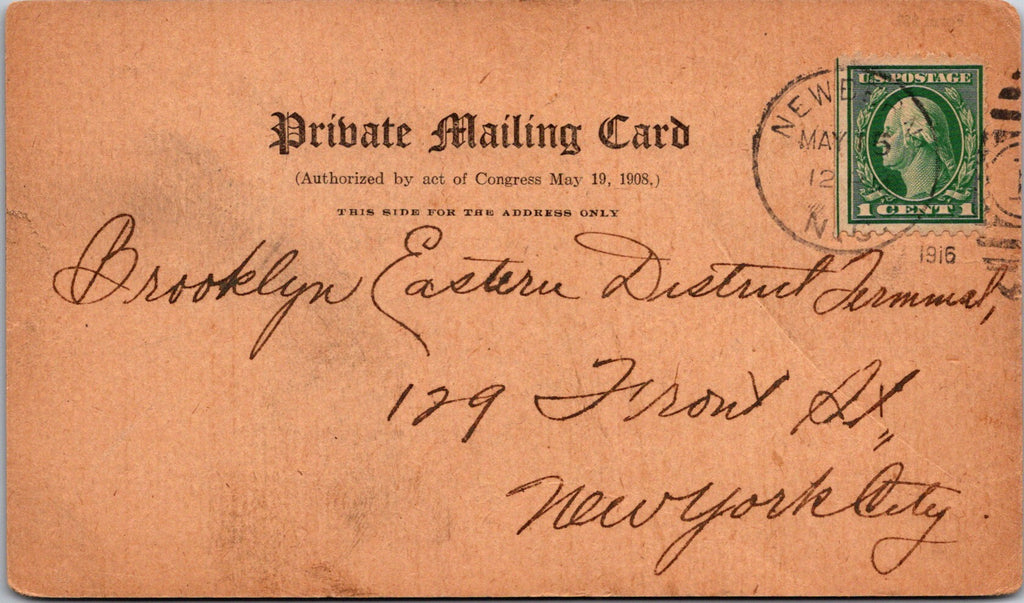 Private Mailing Card
(Authorized by act of Congress May 19, 1908.)
THIS SIDE FOR THE ADDRESS ONLY
U.S. POSTAGE
1 CENT 1
MAY
12
N.C.
1916
Brooklyn Eastern District Terminal,
129 Front St,
New York City.